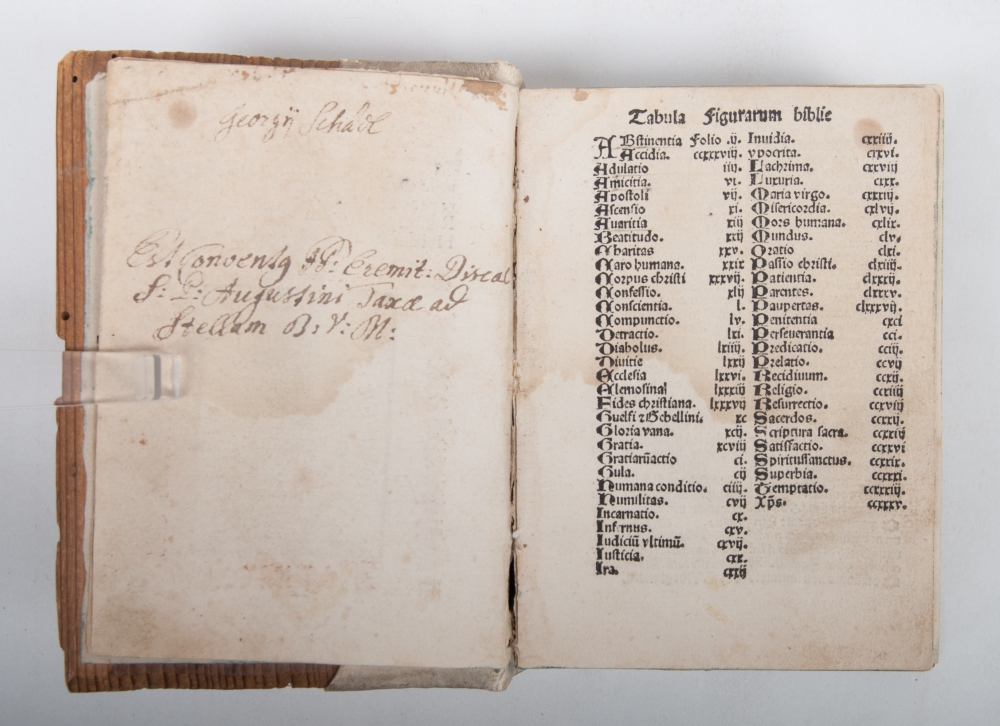 Georgij Schädl
Est Conventq PP: Eremit: Discal
S: P: Augustini Taxæ ad
Stellam B: V: M:
Tabula Figurarum biblie
ABstinentia Folio .ij.
Accidia. ccxxxviij.
Adulatio iiij.
Amicitia. vi.
Apostoli vij.
Ascensio xi.
Avaritia xiij
Beatitudo. xxij
Charitas xxv.
Caro humana. xxix
Corpus christi xxxvij.
Confessio. xlij
Conscientia. l.
Compunctio. lv.
Detractio. lxi.
Diabolus. lxiiij.
Diuitie lxxij
Ecclesia lxxvi.
Elemosina lxxxiij
Fides christiana. lxxxvij
Guelfi ⁊ Gebellini. xc
Gloria vana. xcij.
Gratia. xcviij
Gratiarūactio ci.
Gula. cij
Humana conditio. ciiij.
Humilitas. cvij
Incarnatio. cx.
Infernus. cxv.
Iudiciū vltimū. cxvij.
Iusticia. cxx.
Ira. cxxij
Inuidia. cxxiiij.
ypocrita. cxxvi.
Lachrima. cxxviij
Luxuria. cxxx.
Maria virgo. cxxxiij.
Misericordia. cxlvij.
Mors humana. cxlix.
Mundus. clv.
Oratio clxi.
Passio christi. clxiij.
Patientia. clxxij.
Parentes. clxxxv.
Paupertas. clxxxvij.
Penitentia cxci
Perseuerantia cci.
Predicatio. ccij.
Prelatio. ccvij
Recidiuum. ccxij.
Religio. ccxiiij
Resurrectio. ccxviij
Sacerdos. ccxxij.
Scriptura sacra. ccxxiij
Satisfactio. ccxxvi
Spiritussanctus. ccxxix.
Superbia. ccxxxi.
Temptatio. ccxxxiij.
Xp̄s. ccxxxv.